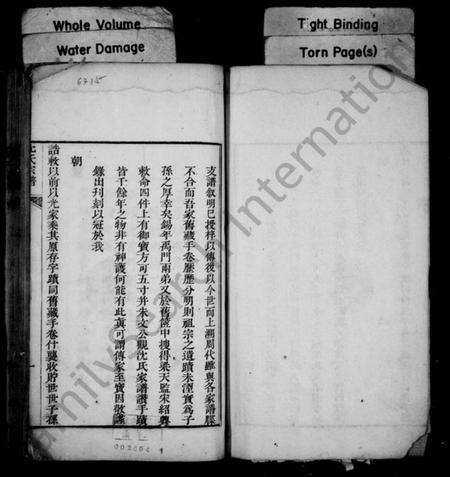 Whole Volume
Water Damage
Tight Binding
Torn Page(s)
6715
支譜叙明已授梓以傳後以今世而上溯周代雖與各家譜牒
不合而吾家舊藏手卷歷歷分明則祖宗之遺蹟未湮實爲子
孫之厚幸矣錫年禹門兩弟又於舊簏中捜得梁天監宋紹興
敕命四件上有御寶方可五寸并朱文公觀沈氏家譜讃手蹟
皆千餘年之物非有神護何能有此眞可謂傳家至寶因敬謹
錄出刊刻以冠於我
朝
誥敕以前以光家乗其原存字蹟同舊藏手卷什襲收貯世世子孫
沈氏宗譜
002664 1
FamilySearch International